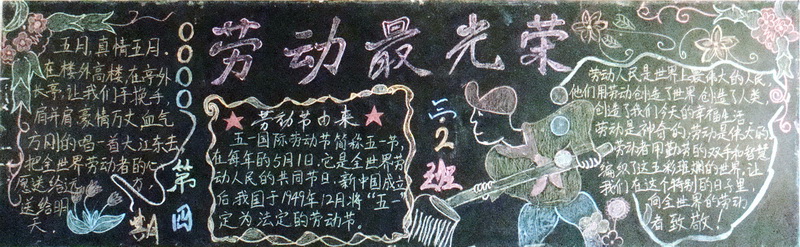 劳动最光荣
五月,真情五月,
在楼外高楼,在亭外
长亭,让我们手挽手,
肩并肩,豪情万丈,血气
方刚的唱一首大江东去
把全世界劳动者的心
愿送给远
送给明
天。
第四期
劳动节由来
五一国际劳动节简称五一节,
在每年的5月1日,它是全世界劳
动人民的共同节日。新中国成立
后我国于1949年12月将“五一”
定为法定的劳动节。
三.2班
劳动人民是世界上最伟大的人民
他们用劳动创造了世界,创造了人类,
创造了我们今天的幸福生活
劳动是神奇的,劳动是伟大的
劳动者用勤劳的双手和智慧
编织了这五彩斑斓的世界,让
我们在这个特别的日子里,
向全世界的劳动
者致敬!